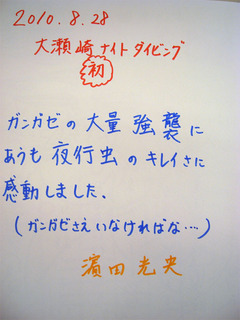 2010.8.28
大瀬崎ナイトダイビング
初
ガンガゼの大量強襲に
あうも夜行虫のキレイさに
感動しました、
(ガンガゼさえいなければな…)
濱田光央